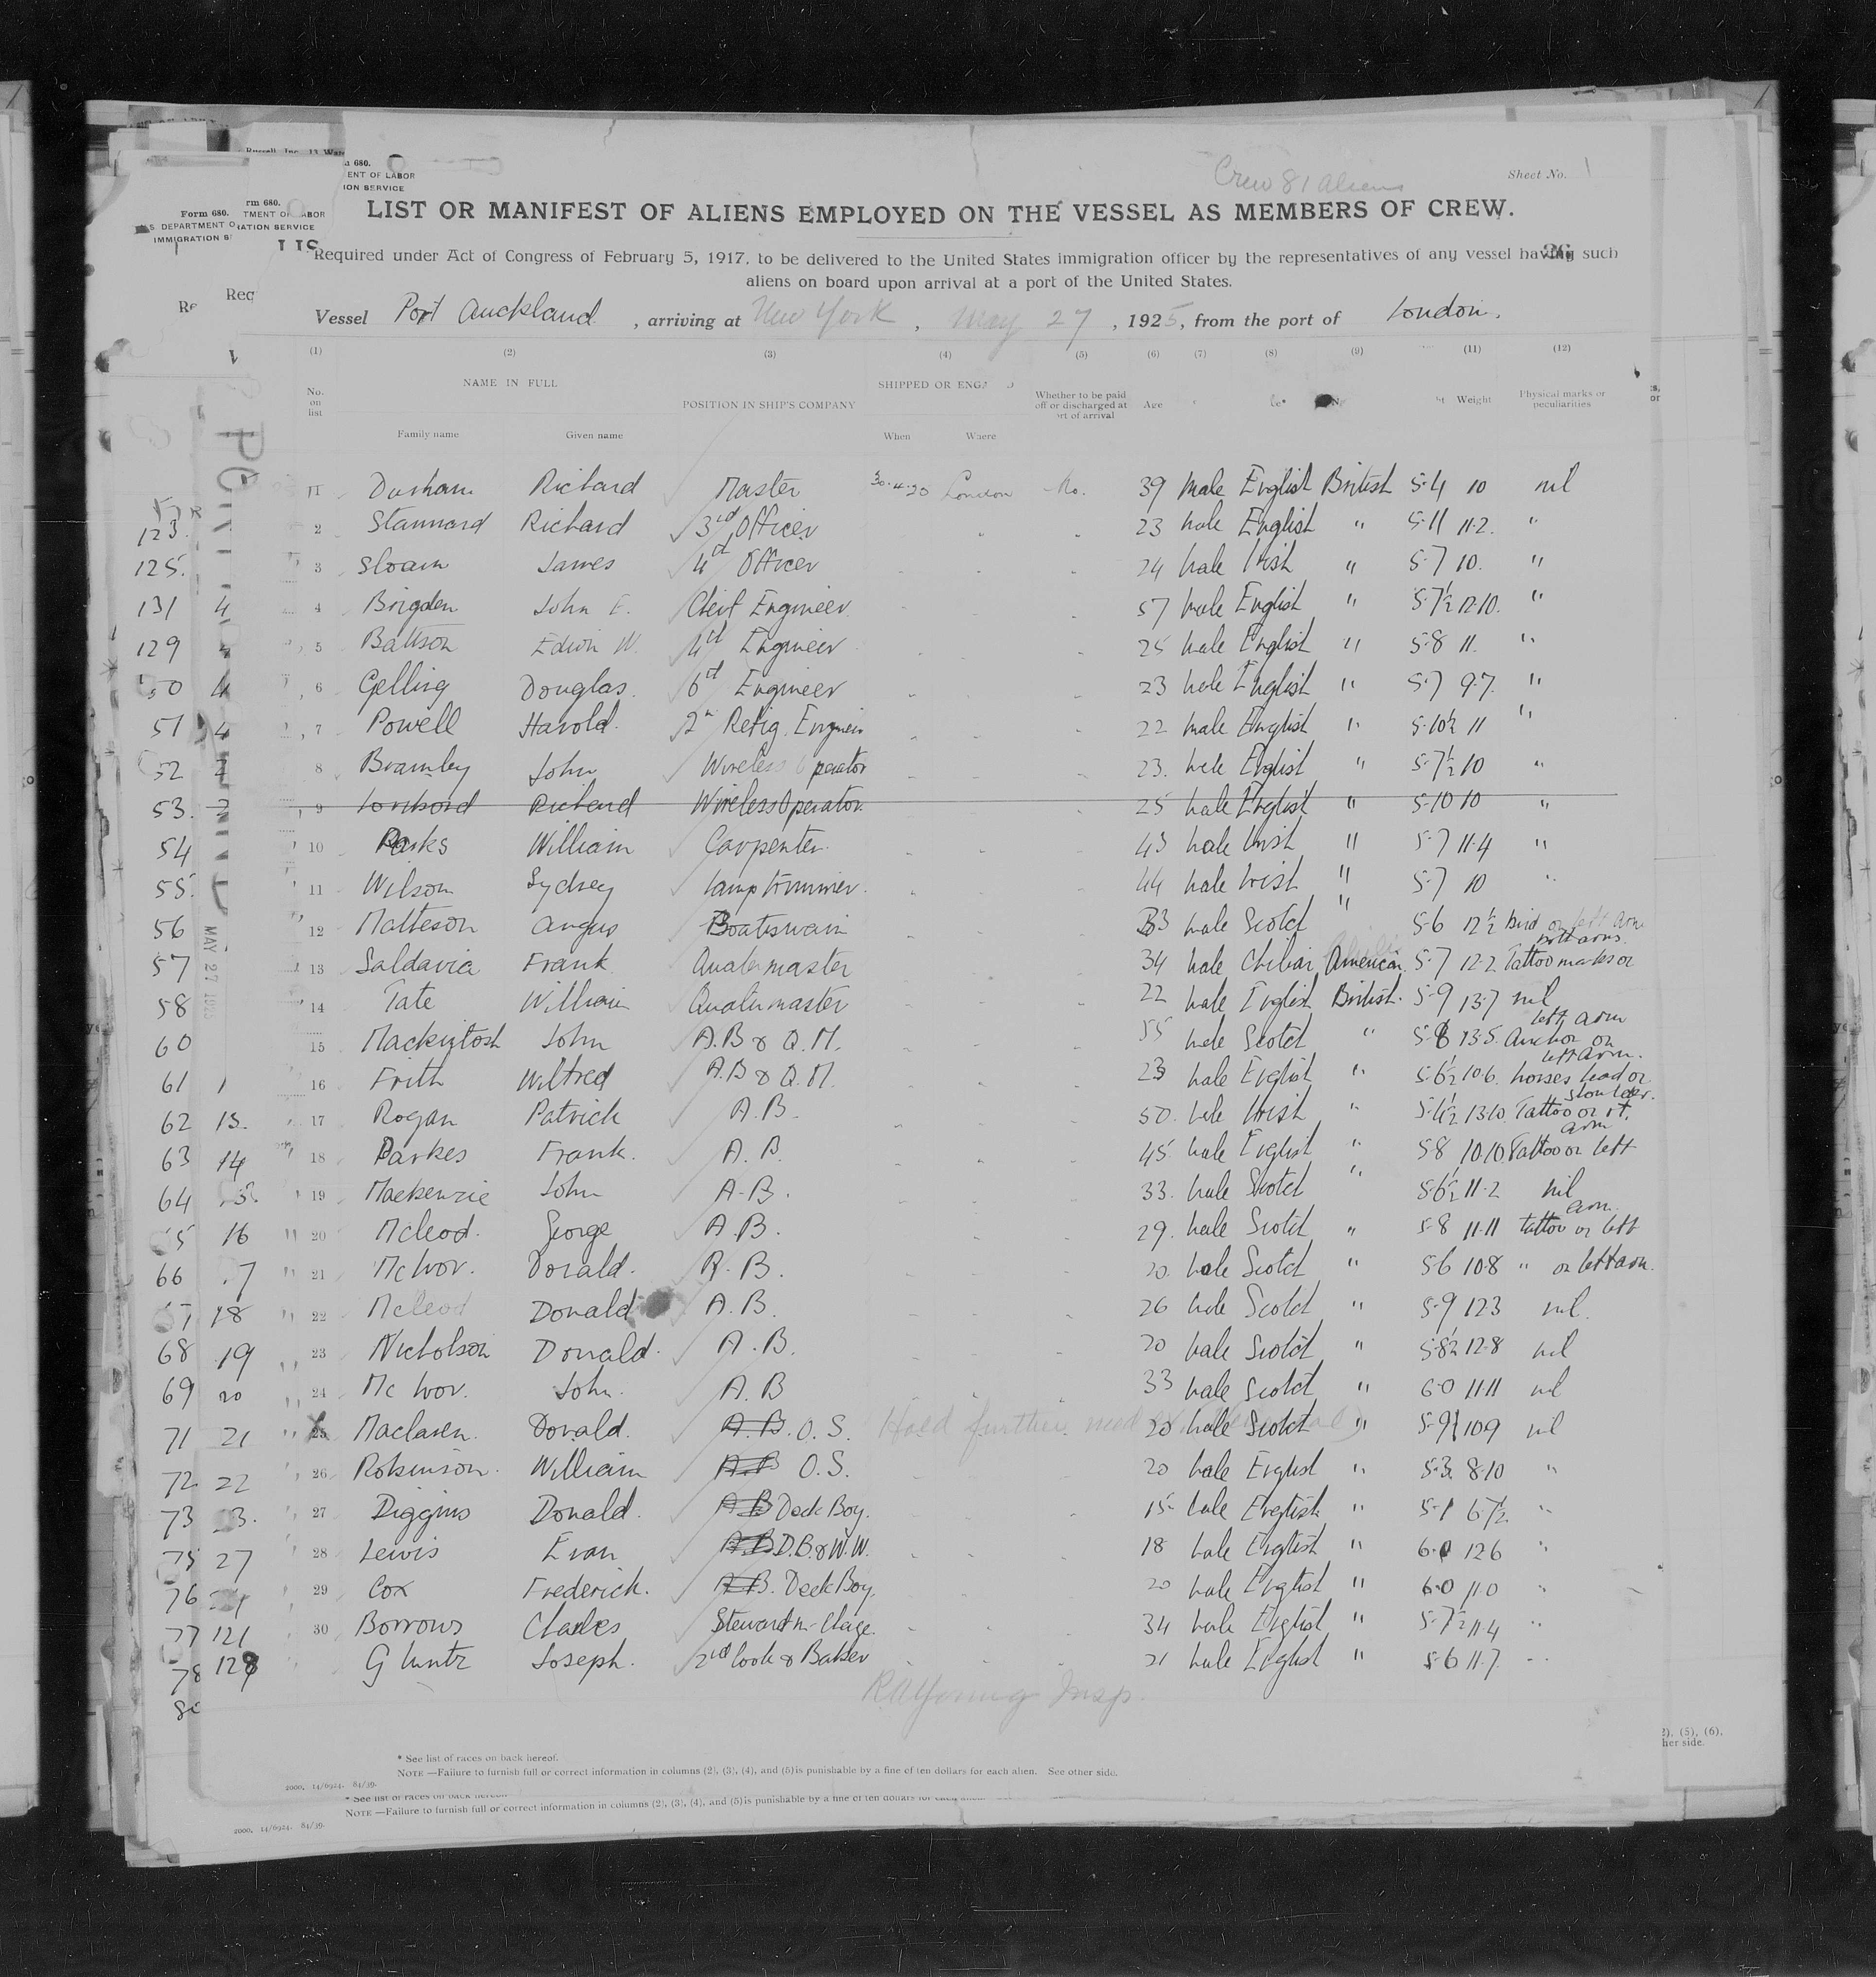 Crew 81 Aliens
Sheet No. 1
LIST OR MANIFEST OF ALIENS EMPLOYED ON THE VESSEL AS MEMBERS OF CREW.
Required under Act of Congress of February 5, 1917, to be delivered to the United States immigration officer by the representatives of any vessel having such
aliens on board upon arrival at a port of the United States.
Vessel Port Auckland, arriving at New York, May 27, 1925, from the port of London.
(1) (2) (3) (4) (5) (6) (7) (8) (9) (11) (12)
No. on list NAME IN FULL Family name Given name POSITION IN SHIP'S COMPANY SHIPPED OR ENG When Where Whether to be paid off or discharged at Age Weight Physical marks or peculiarities
Durham Richard Master London No. 39 Male English British 5-4 10 nil
2 Stannard Richard 3rd Officer 23 Male English " 5-11 11-2 "
3 Sloan James 4th Officer 24 Male Irish " 5-7 10 "
4 Brigden John Cheif Engineer 57 Male English " 5-7½ 12-10 "
5 Battson Edwin W. 4th Engineer 25 Male English " 5-8 11 "
6 Gelling Douglas 6th Engineer 23 Male English " 5-7 9-7 "
7 Powell Harold 2n Refig. Engineer 22 Male English " 5-10½ 11 "
8 Bramley John Wireless Operator 23 Male English " 5-7½ 10 "
9 Richard Wireless Operator 25 Male English " 5-10 10 "
10 Parks William Carpenter 43 Male Irish " 5-7 11-4 "
11 Wilson Sydney Lamptrimmer 44 Male Irish " 5-7 10 "
12 Matteson Angus Boatswain 33 Male Scotch " 5-6 12½ Bird on left arm
13 Saldavia Frank Quatermaster 34 Male Chilian American 5-7 12-2 Tattoo marks on both arms.
14 Tate William Quatermaster 22 Male English British 5-9 13-7 nil
15 Mackintosh John A.B & Q.M. 55 Male Scotch " 5-8 13-5 Anchor on left arm
16 Frith Wilfred A.B & Q.M. 23 Male English " 5-6½ 10-6 horses head on left arm.
17 Rogan Patrick A.B. 50 Male Irish " 13-10 Tattoo on rt. shoulder.
18 Parkes Frank A.B. 45 Male English " 5-8 10-10 Tattoo on left arm
19 Mackenzie John A.B. 33 Male Scotch " 5-6½ 11-2 nil
20 Mcleod George A.B. 29 Male Scotch " 5-8 11-11 tattoo on left arm
21 McIvor Donald A.B. 20 Male Scotch " 5-6 10-8 " on left arm.
22 Mcleod Donald A.B. 26 Male Scotch " 5-9 12-3 nil
23 Nicholson Donald A.B. 20 Male Scotch " 5-8½ 12-8 nil
24 McIvor John A.B 33 Male Scotch " 6-0 11-11 nil
25 Maclaren Donald A.B. O.S. Hold further 20 Male Scotch " 10-9 nil
26 Robinson William A.B O.S. 20 Male English " 5-3 8-10 "
27 Diggins Donald A B Deck Boy. 15 Male English " 5-1 6-7½ "
28 Lewis Evan A.B. D.B. & W.W. 18 Male English " 12-6 "
29 Cox Frederick A.B. Deck Boy. 20 Male English " 6-0 11-0 "
30 Borrows Charles Steward 34 Male English " 5-7½ 11-4 "
Joseph 2nd Cook & Baker 21 Male English " 5-6 11-7 "
R A Young Insp.
* See list of races on back hereof.
NOTE —Failure to furnish full or correct information in columns (2), (3), (4), and (5) is punishable by a fine of ten dollars for each alien. See other side.
2000. 14/6924. 84/39.
NOTE —Failure to furnish full or correct information in columns (2), (3), (4), and (5) is punishable by a fine of ten dollars for
2000. 14/6924. 84/39.